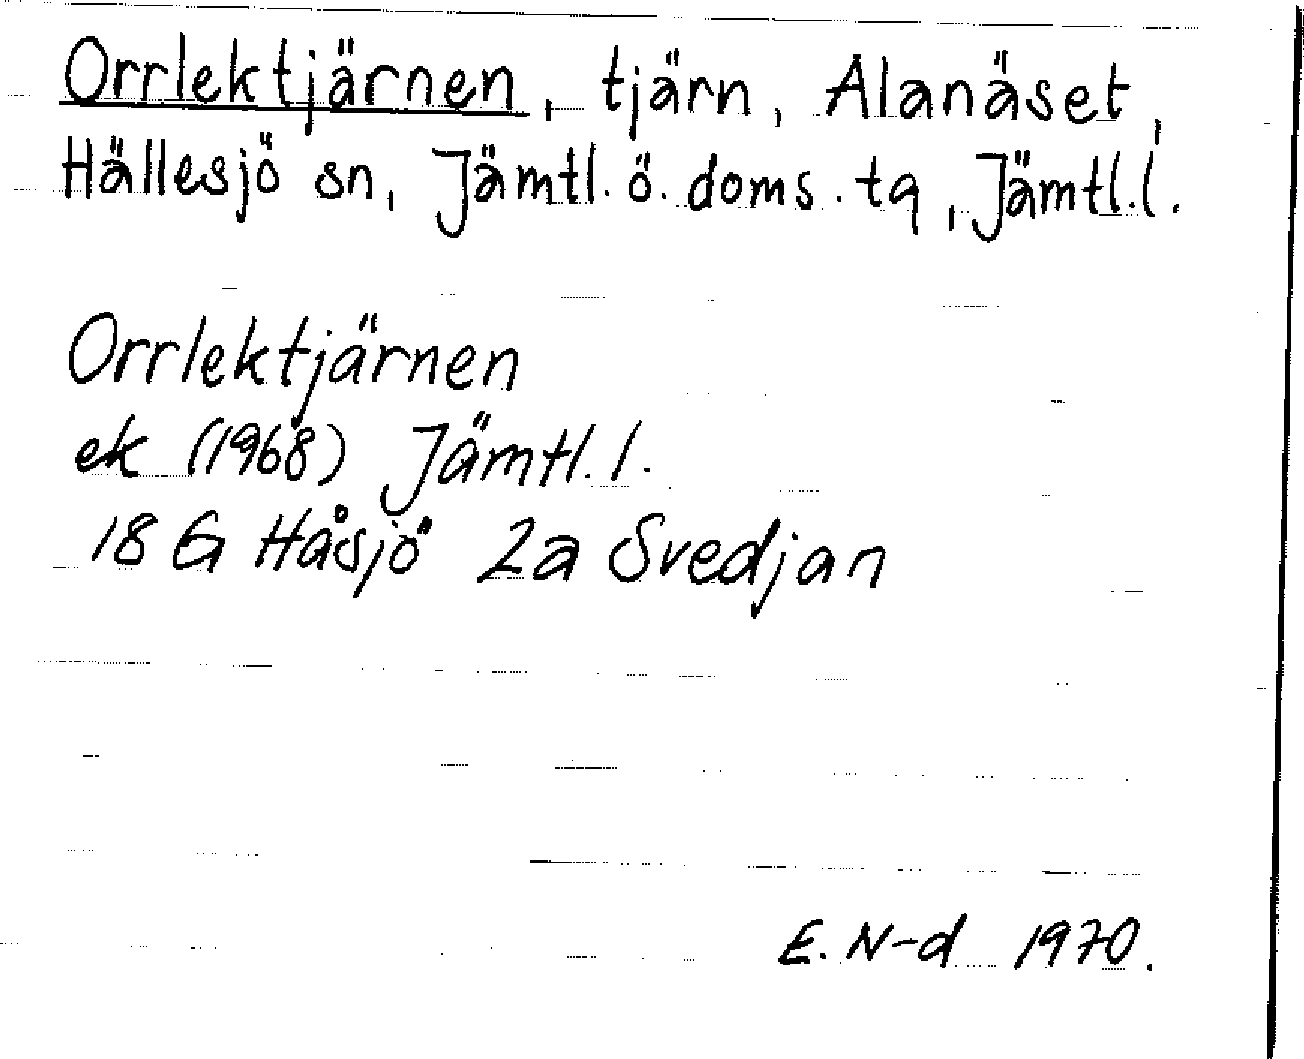 Orrlektjärnen, tjärn, Alanäset,
Hällesjö sn, Jämtl. ö. doms. tq, Jämtl. l.
Orrlektjärnen
ek (1968) Jämtl. l.
18 G Håsjö 2a Svedjan
E. N-d 1970.